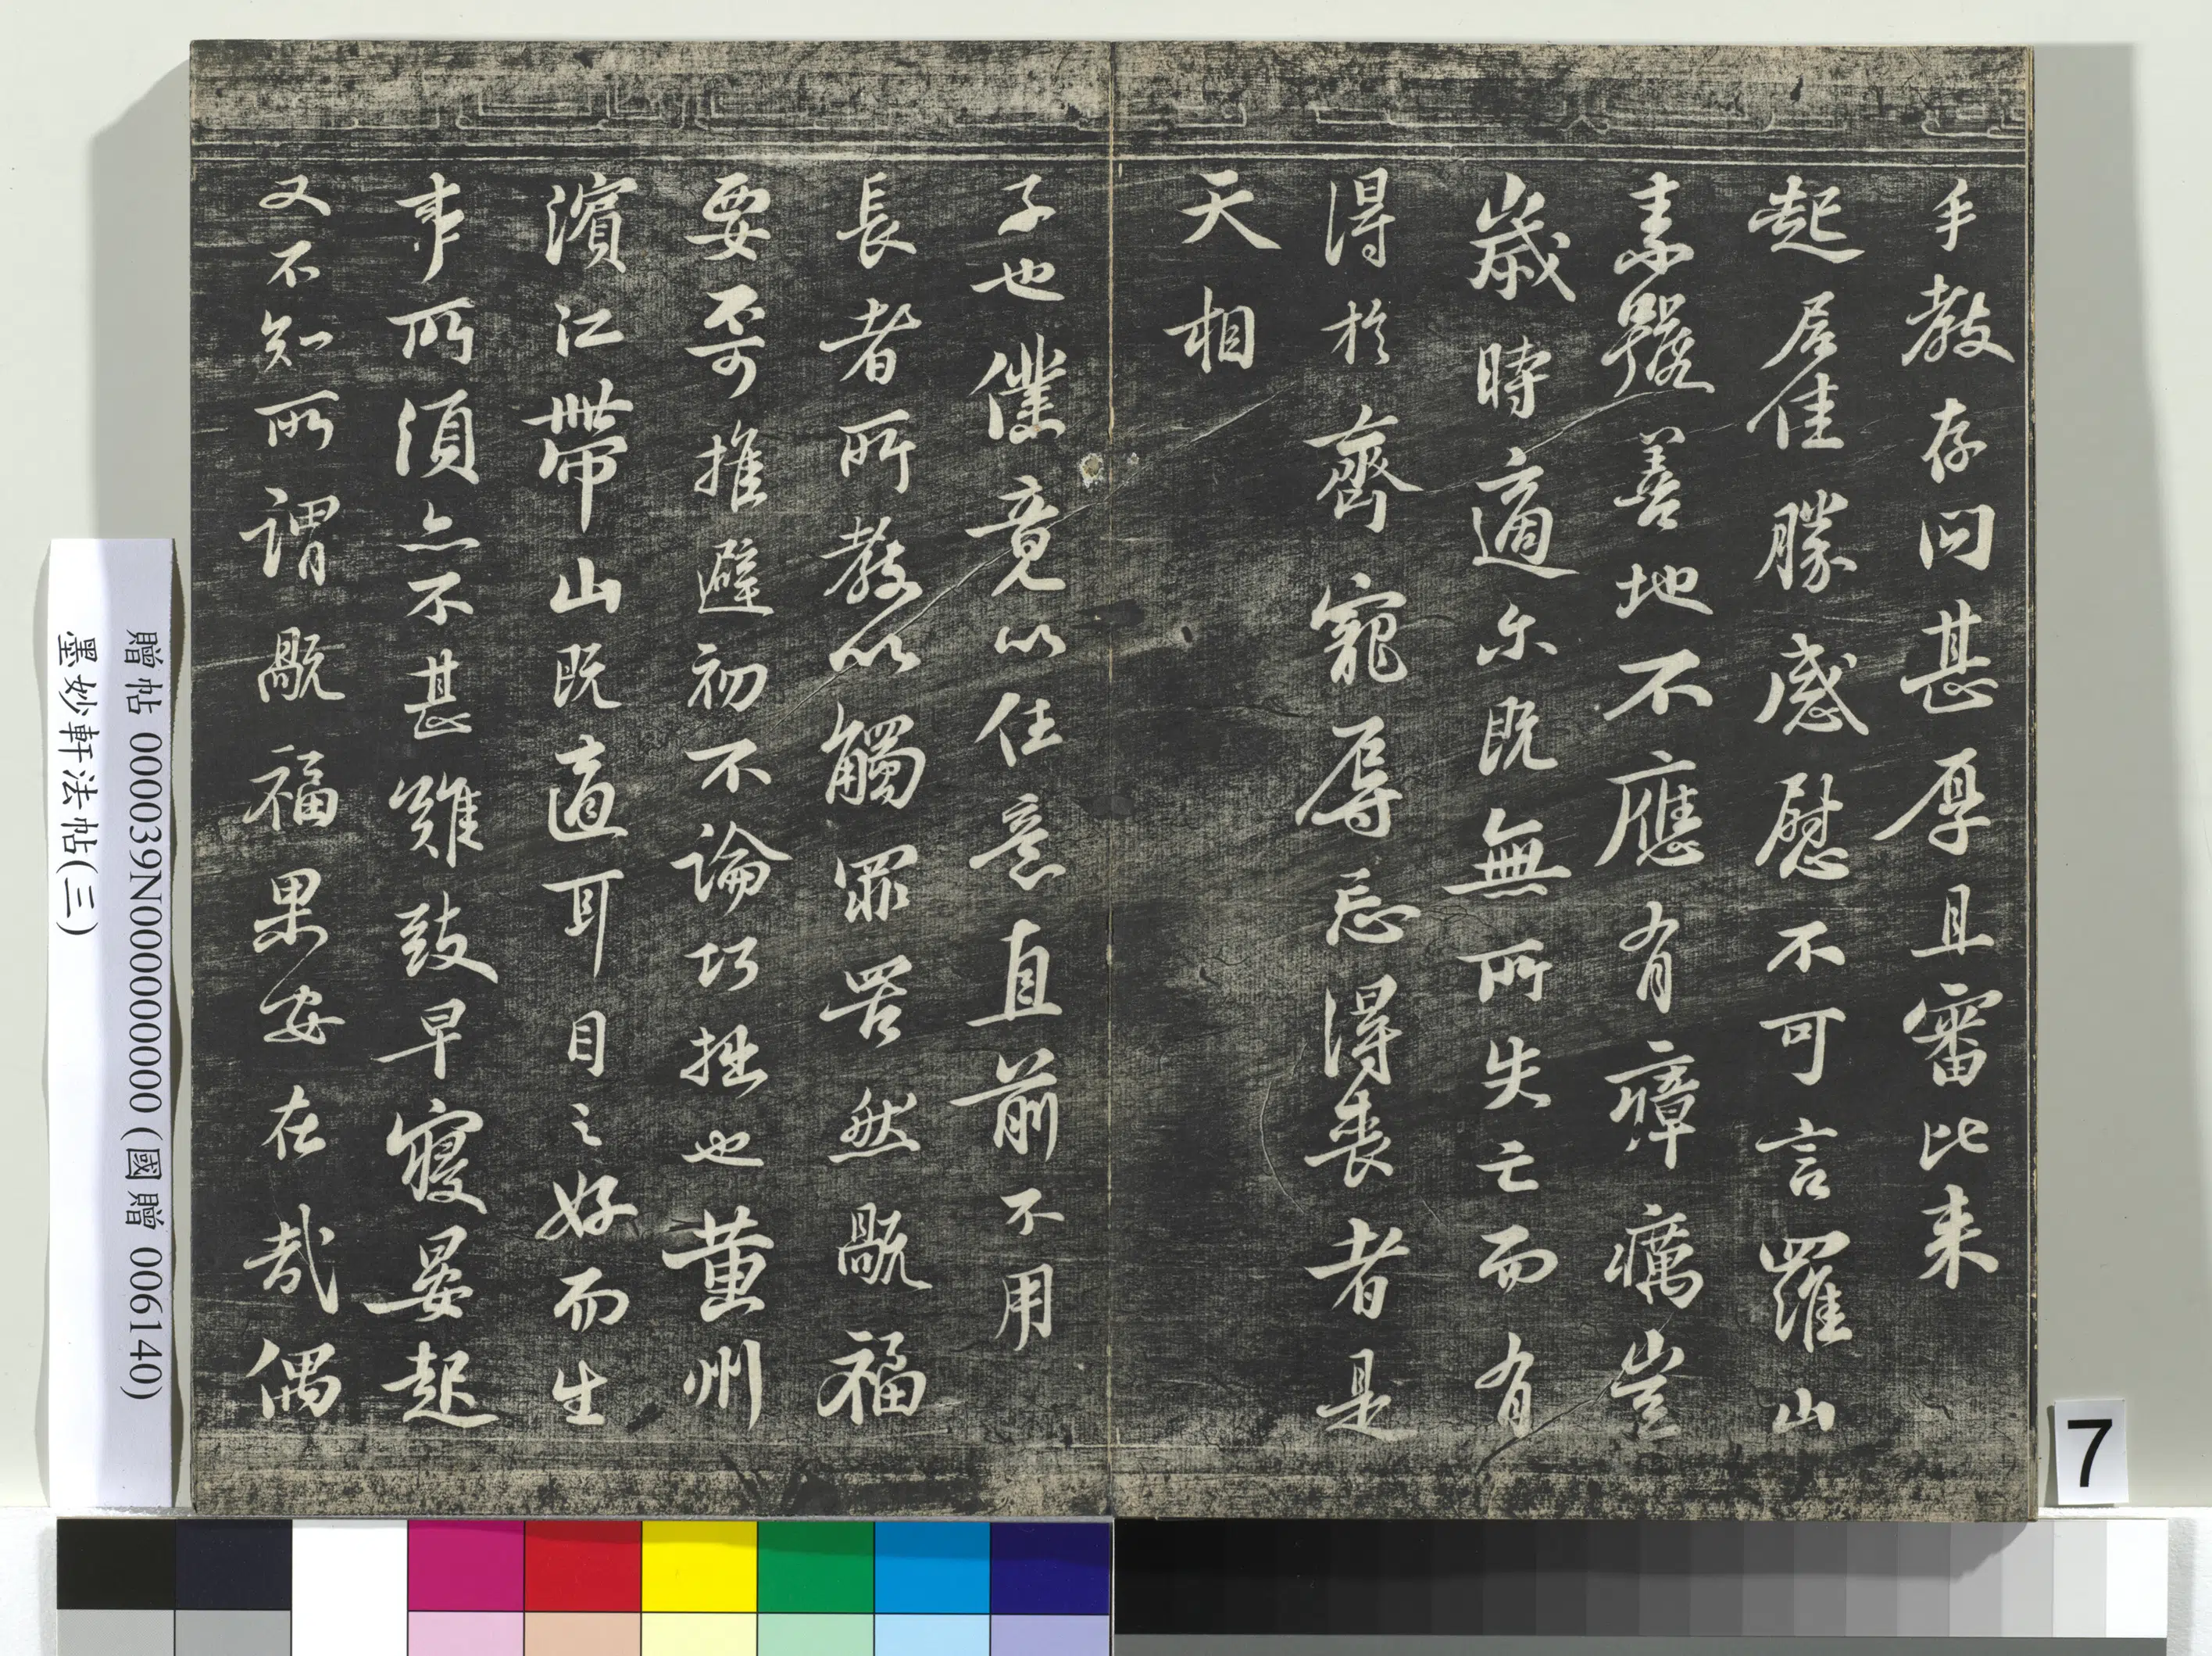 手教存問甚厚且審比来
起居佳勝感慰不可言羅山
素號善地不應有瘴癘豈
歲時適尓既無所失亡而有
得於齊寵辱忘得喪者是
天相
子也僕竟以任意直前不用
長者所教以觸罪罟然禍福
要不可推避初不論巧拙也黃州
濱江帶山既適耳目之好而生
事所須亦不甚難致早寢晏起
又不知所謂禍福果安在哉偶
贈帖 000039N000000000 (國贈 006140)
墨妙軒法帖(三)
7